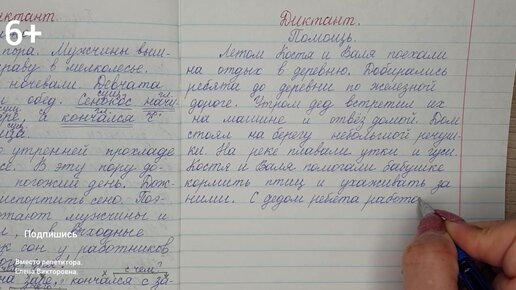 6+
диктант
пора. Мужчины вый-
праву в мелколесье.
ночевали. Девчата
и обед. Сенокос начи
, а кончался с
утренней прохладе
В эту пору до-
погожий день. Дож-
испортить сено. Поэ-
мужчины и
, в выходные
сон у работников
Подпишись
Вместо репетитора.
Елена Викторовна.
с чем?
на заре, кончался с за-
Диктант.
Помощь.
Летом Костя и Валя поехали
на отдых в деревню. Добирались
ребята до деревни по железной
дороге. Утром дед встретил их
на машине и отвёз домой. Дом
стоял на берегу небольшой речуш-
ки. На реке плавали утки и гуси.
Костя и Валя помогали бабушке
кормить птиц и ухаживать за
ними. С дедом ребята работа